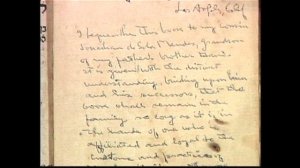 Los Angeles, Calif
I bequeath this book to my cousin
Jonathan de Sola Mendes, grandson
of my father's brother
It is given with the distinct
understanding, binding upon him
and his successors, that the
book shall remain in the
family so long as it is in
the hands of one who is
affiliated and loyal to the
customs and practices of